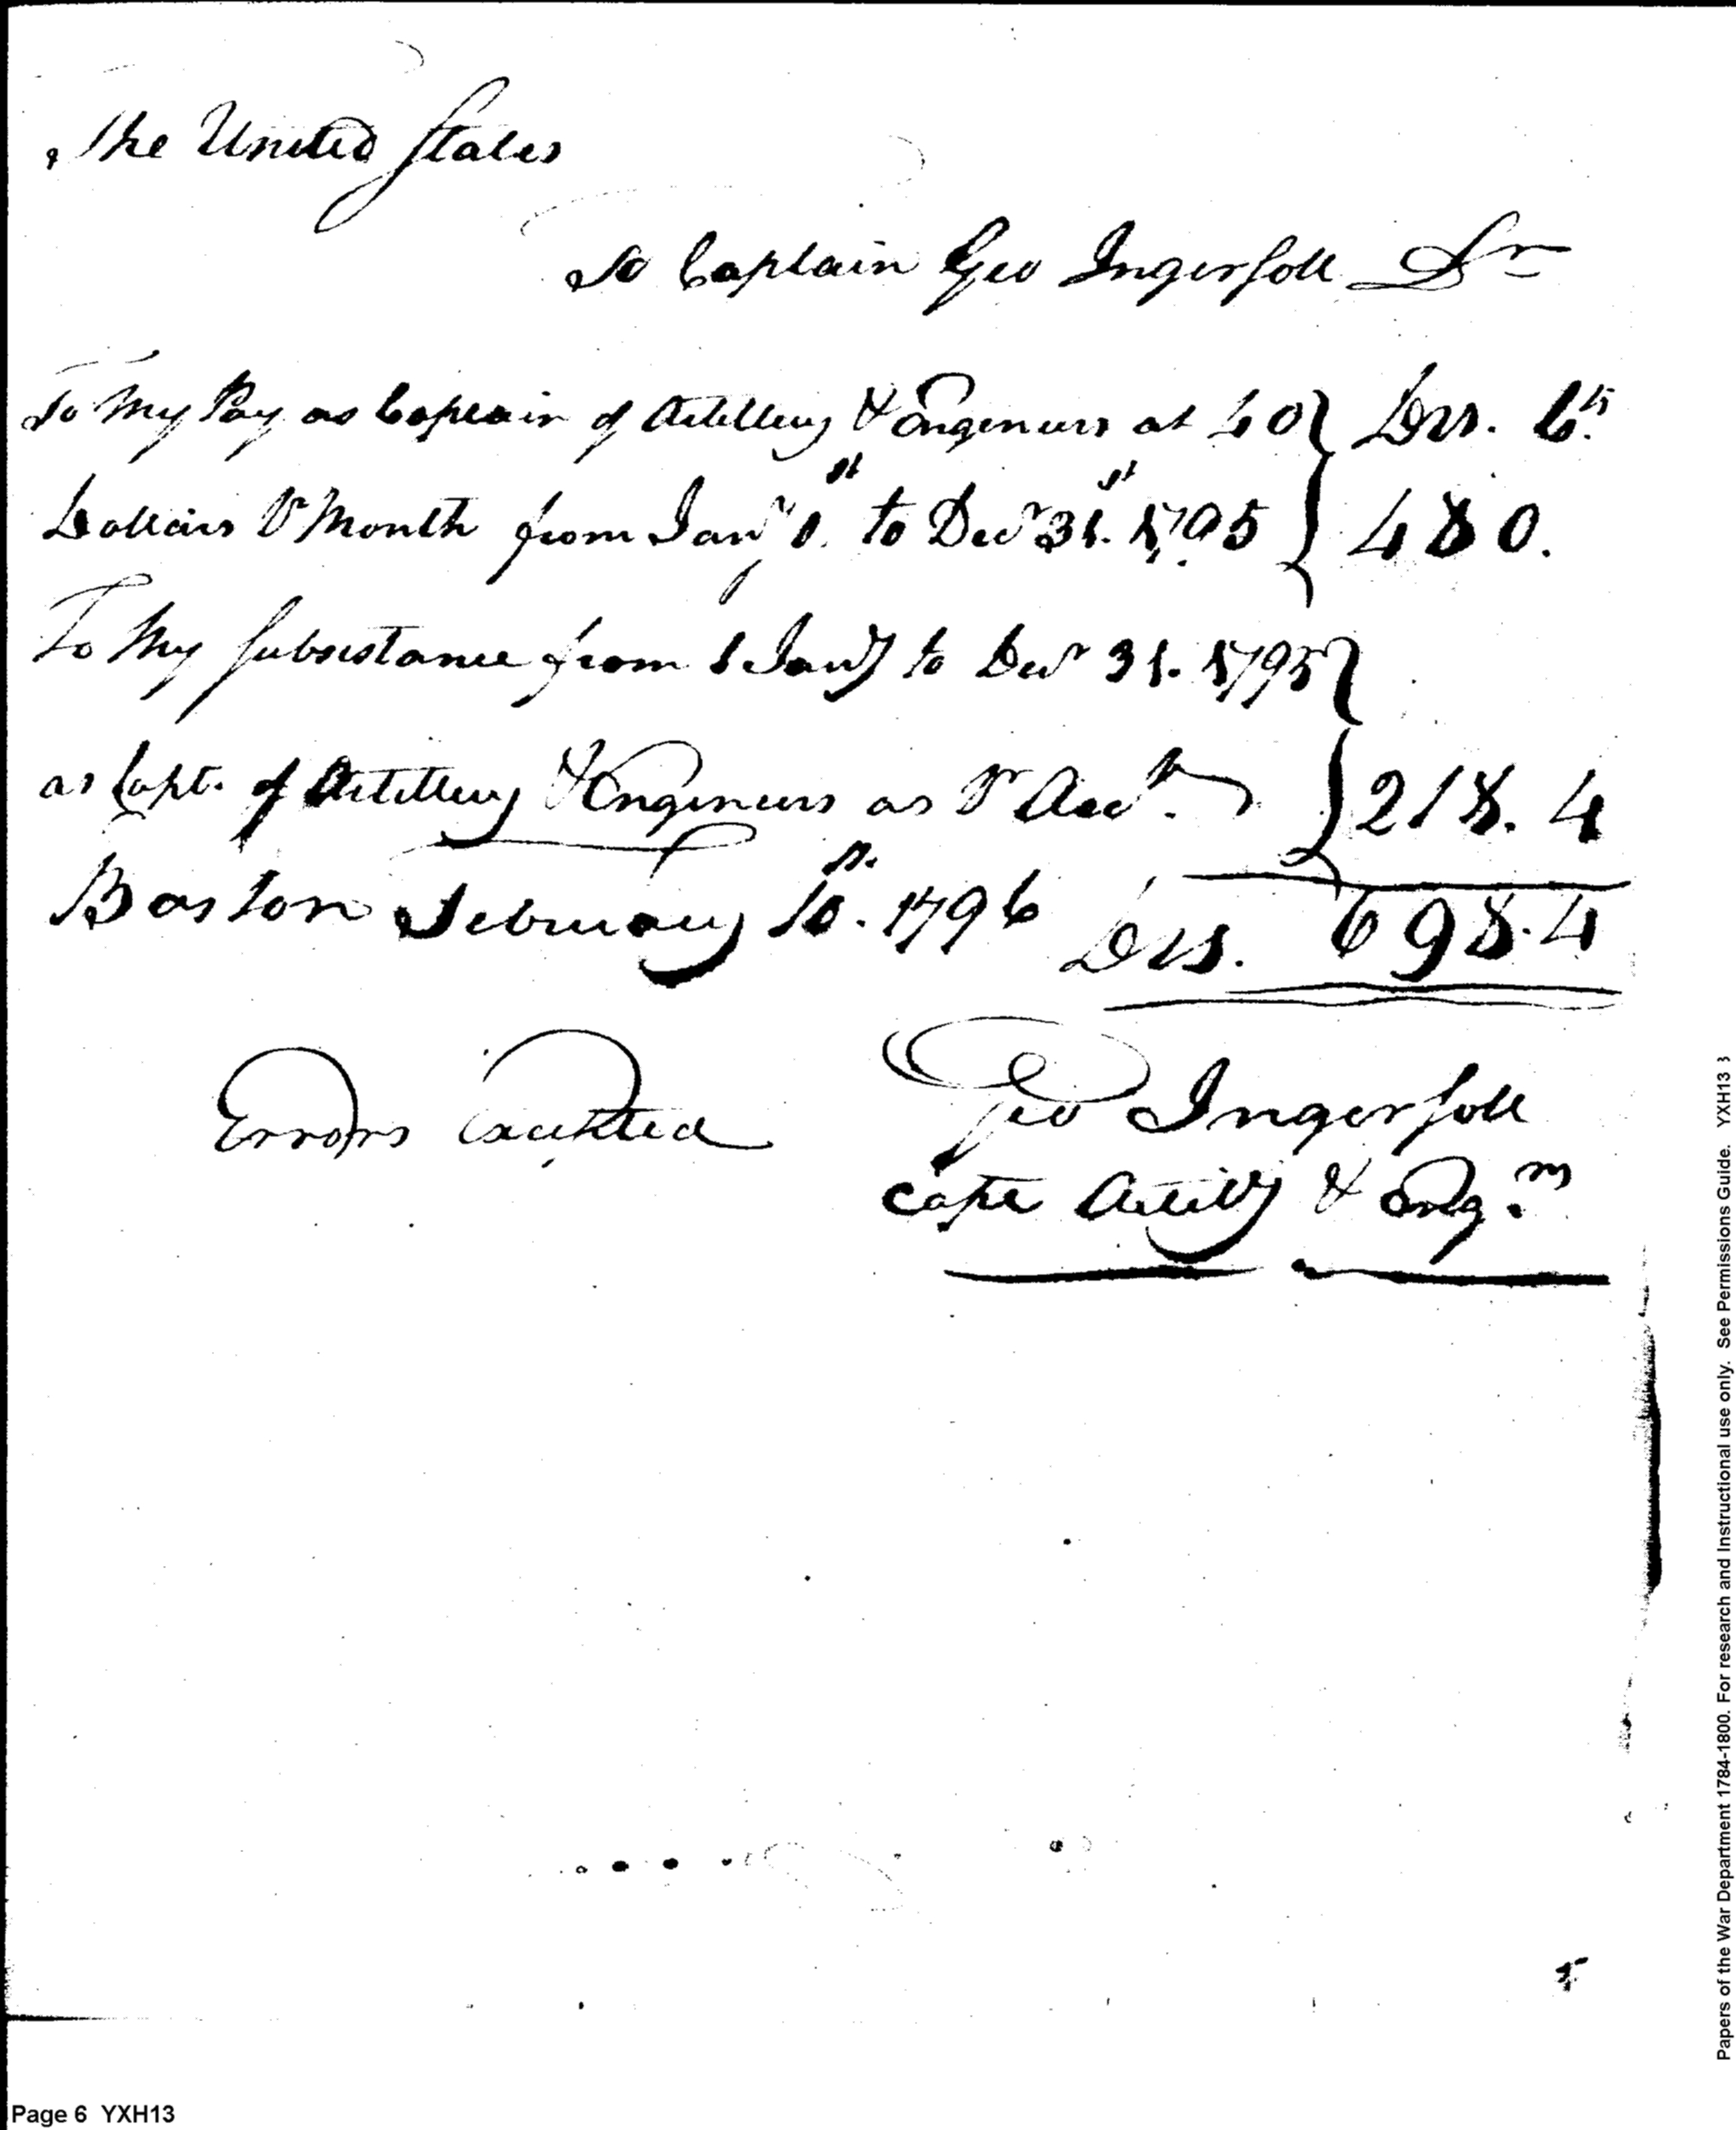 The United States
To Captain Geo Ingersoll Dr
To My Pay as Captain of Artillery & Engineers at 40 Drs. Cts.
Dollars Pr Month from Jany 1st to Decr 31st 1795 480.
To My Subsistance from 1 Jany to Decr 31. 1795
as Capt. of Artillery & Engineers as Pr Acct. 218. 4
Boston February 10th. 1796 Drs. 698.4
Errors Excepted Geo Ingersoll
Capt Artilly & Engrs
Papers of the War Department 1784-1800. For research and Instructional use only. See Permissions Guide. YXH13
Page 6 YXH13